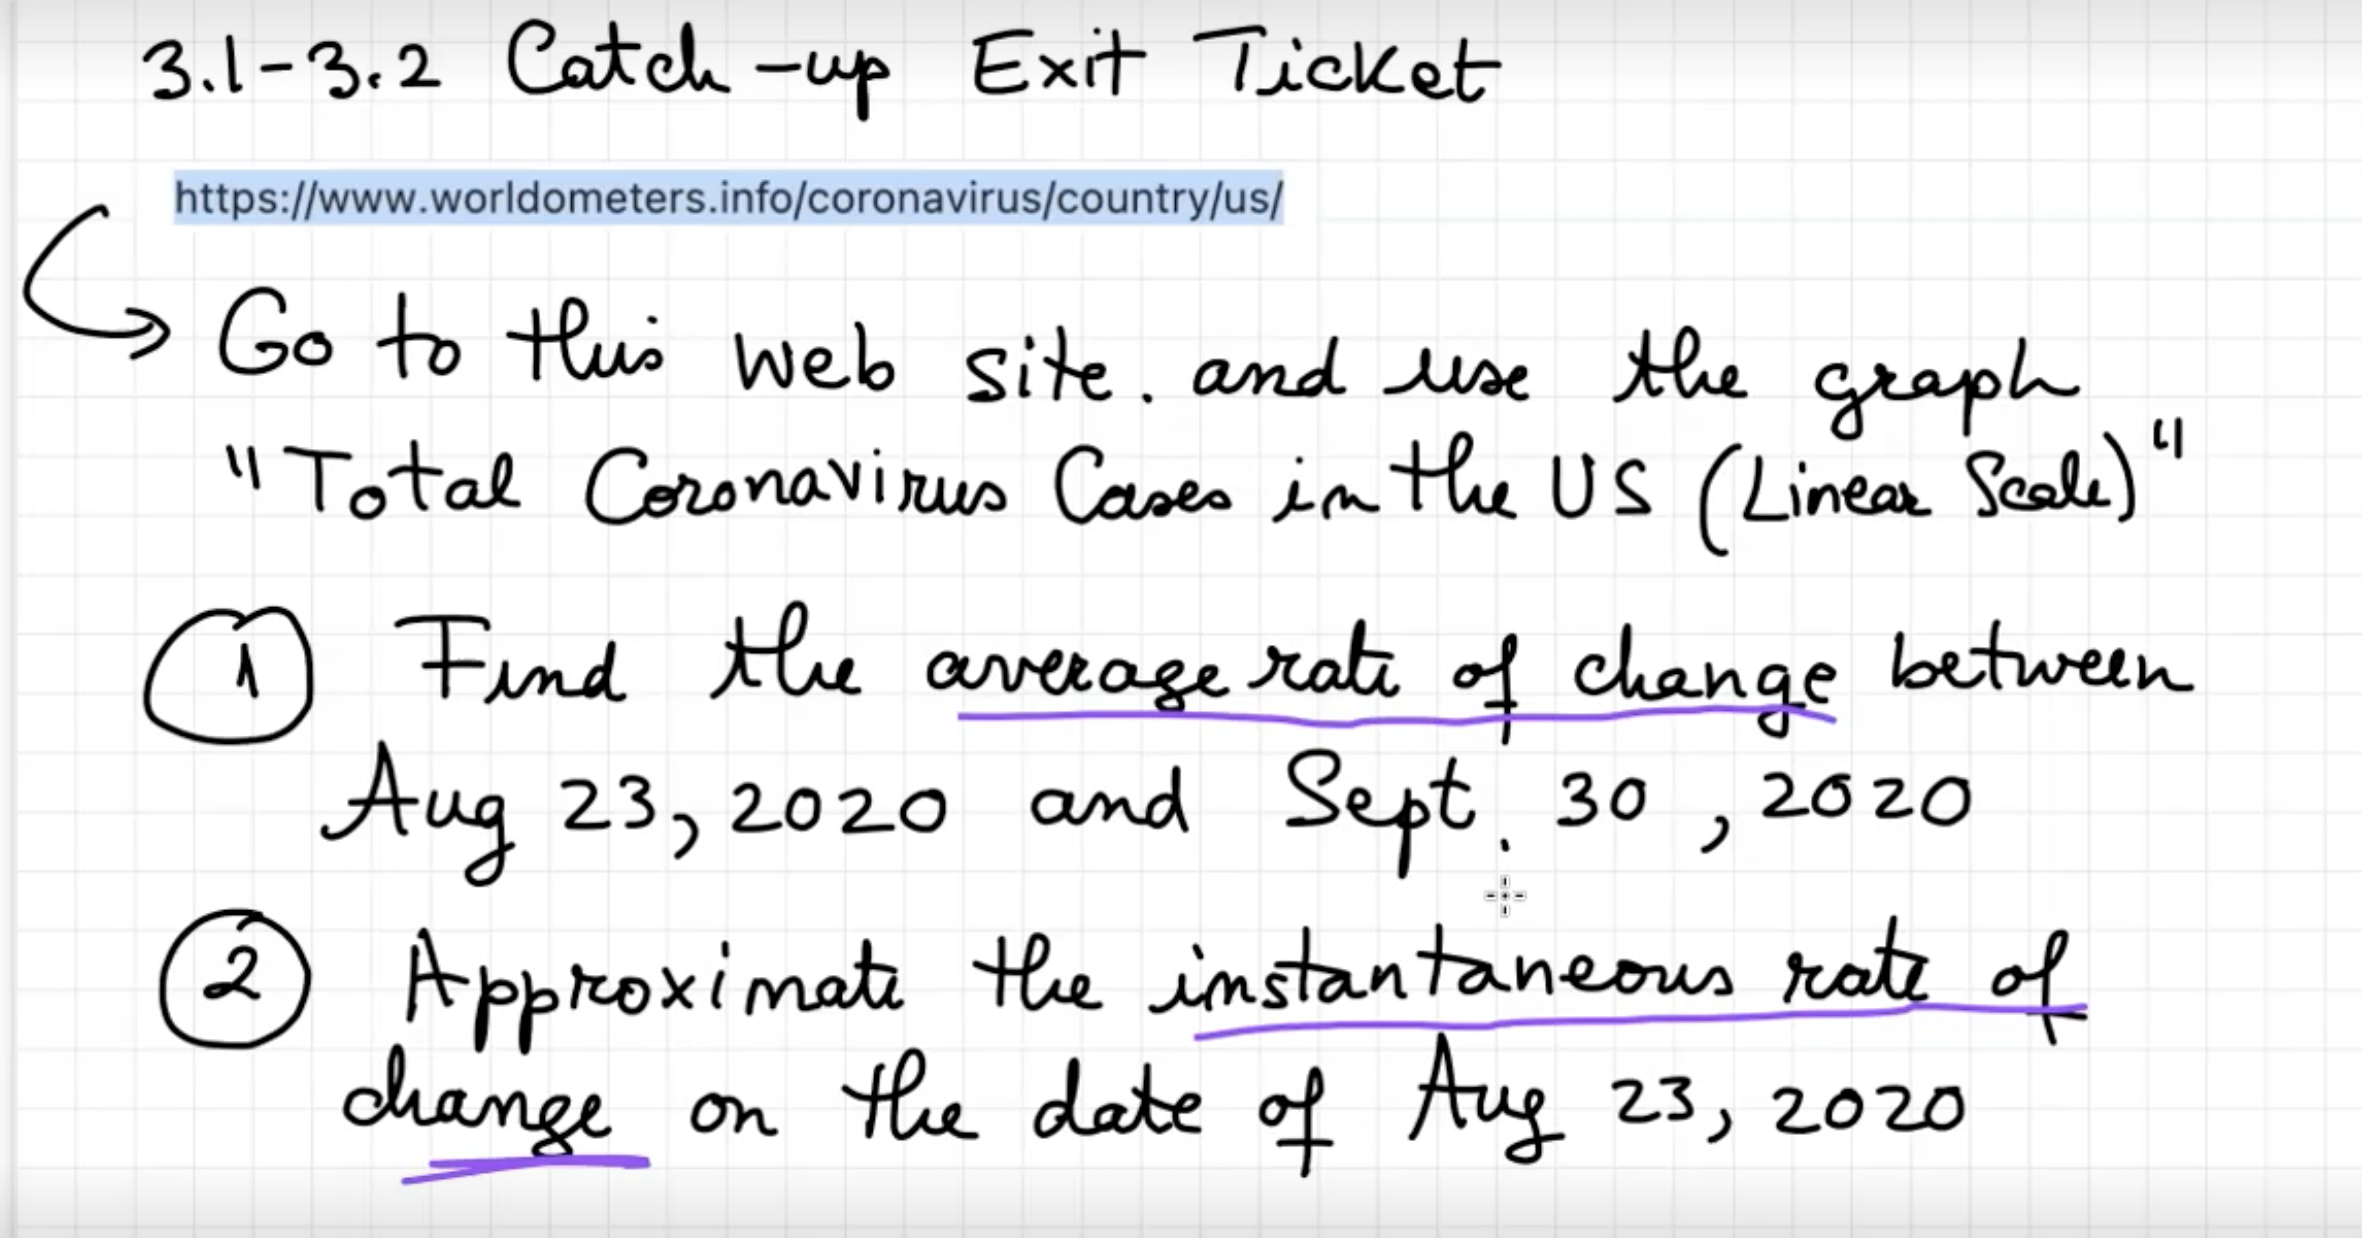 3.1-3.2 Catch-up Exit Ticket
https://www.worldometers.info/coronavirus/country/us/
Go to this web site. and use the graph
"Total Coronavirus Cases in the US (Linear Scale)"
1 Find the average rate of change between
Aug 23, 2020 and Sept. 30, 2020
2 Approximate the instantaneous rate of
change on the date of Aug 23, 2020